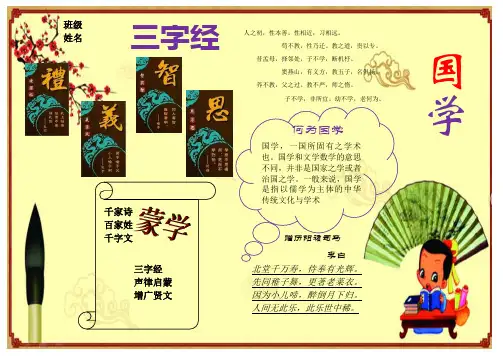 班级
姓名
三字经
人之初，性本善。性相近，习相远。
苟不教，性乃迁。教之道，贵以专。
昔孟母，择邻处，子不学，断机杼。
窦燕山，有义方，教五子，名俱扬。
养不教，父之过。教不严，师之惰。
子不学，非所宜。幼不学，老何为。
国学
禮
義
智
思
何为国学
国学，一国所固有之学术
也。国学和文学数学的意思
不同，并非是国家之学或者
治国之学。一般来说，国学
是指以儒学为主体的中华
传统文化与学术
千家诗
百家姓
千字文
蒙学
三字经
声律启蒙
增广贤文
赠历阳褚司马
李白
北堂千万寿，侍奉有光辉。
先同稚子舞，更著老莱衣。
因为小儿啼，醉倒月下归。
人间无此乐，此乐世中稀。